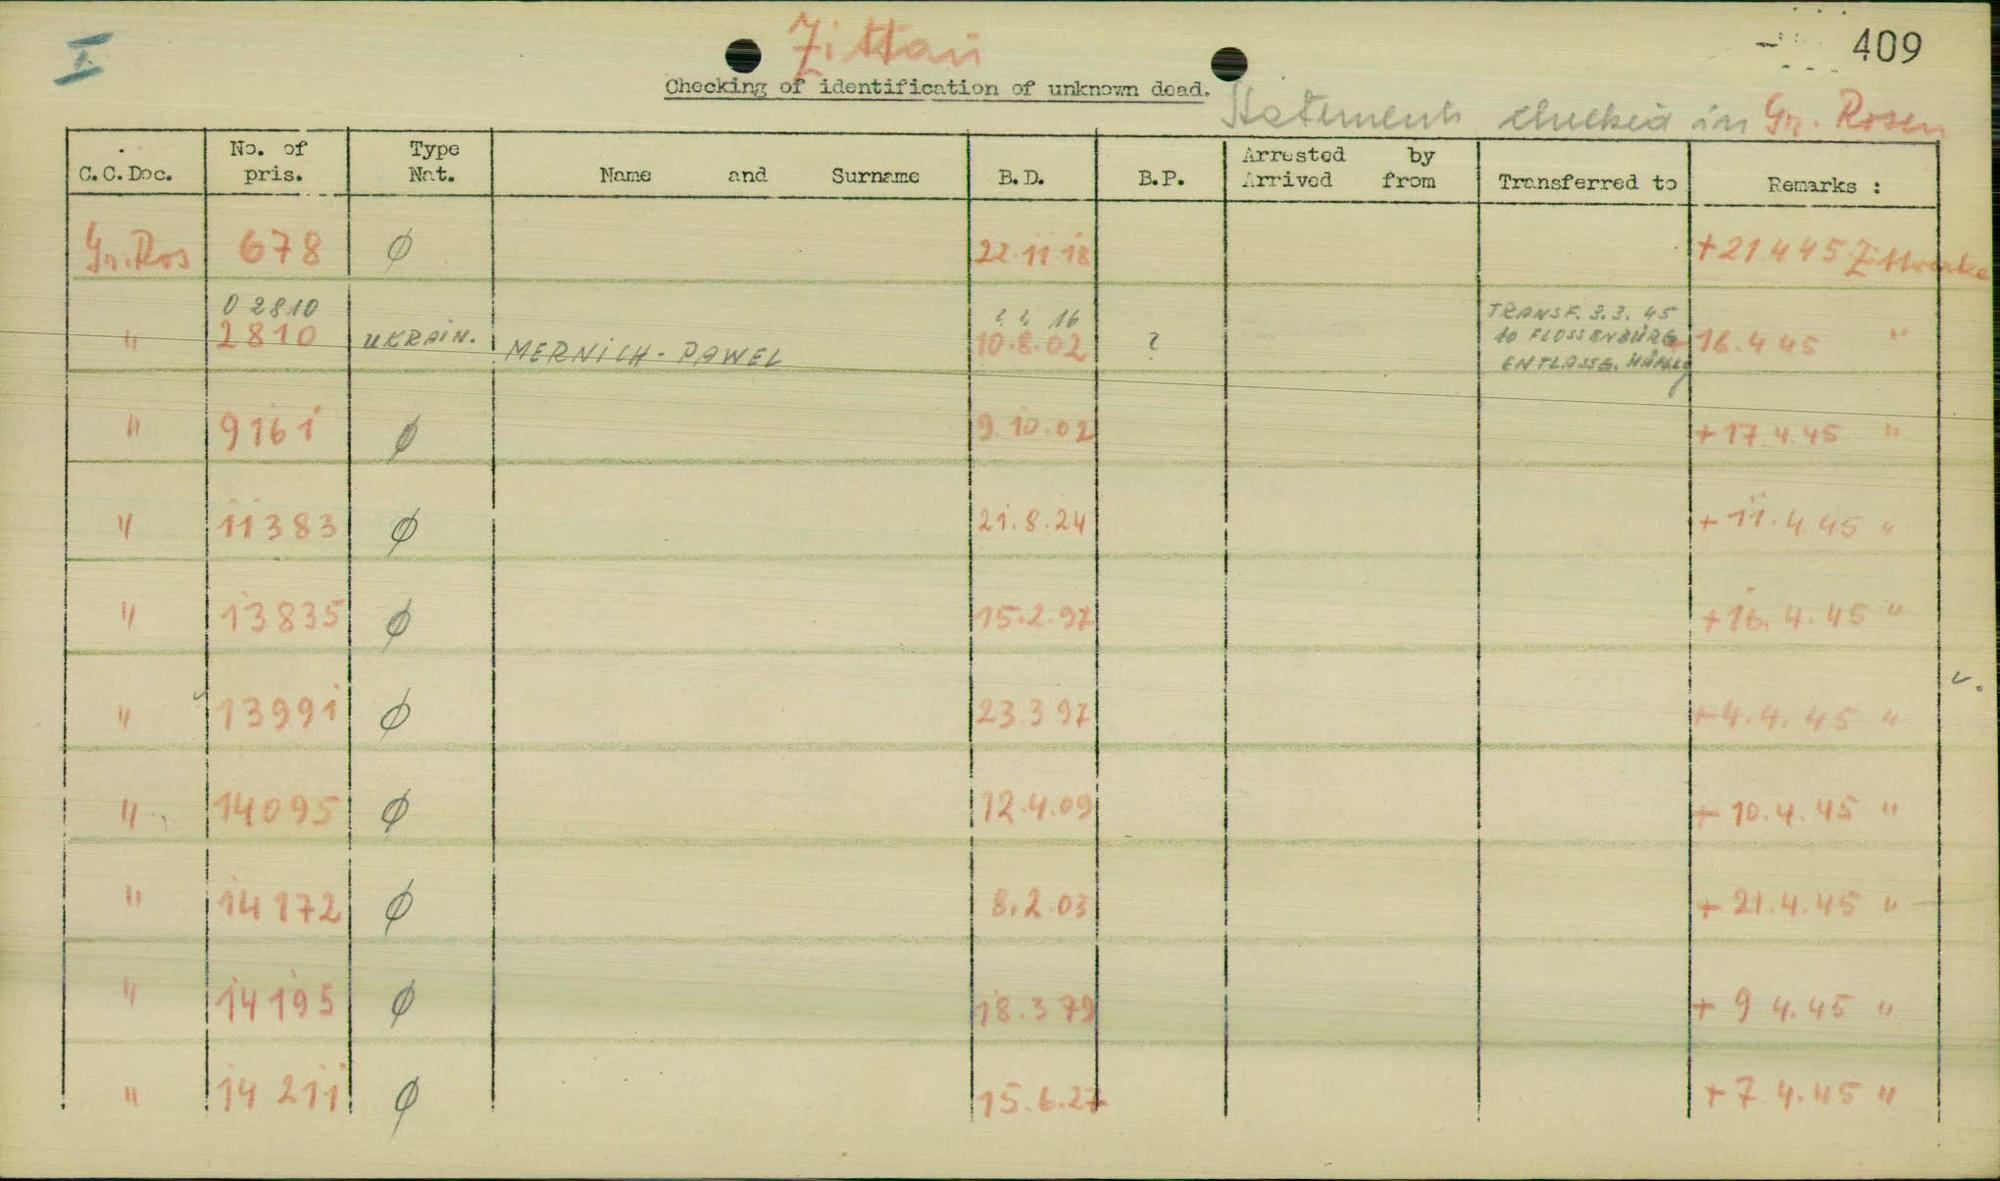 I.
Zittau
409
Checking of identification of unknown dead.
Statements checked in Gr. Rosen
C.C.Doc. No. of pris. Type Nat. Name and Surname B.D. B.P. Arrested by Arrived from Transferred to Remarks :
Gr. Ros 678 Ø 22.11.18 +21 4 45 Zittwerke
0 2810 ? ? 16 TRANSF. 3.3.45
" 2810 UKRAIN. MERNICH - PAWEL 10.8.02 ? to FLOSSENBÜRG + 16.4 45 "
ENTLASSG.
" 9161 Ø 9.10.02 +17.4.45 "
" 11383 Ø 21.8.24 + 11.4.45 "
" 13835 Ø 15.2.97 +16.4.45 "
" 13991 Ø 23.3 97 +4.4.45 "
" 14095 Ø 12.4.09 + 10.4.45 "
" 14172 Ø 8.2.03 + 21.4.45 "
" 14195 Ø 18.3 79 + 9 4.45 "
" 14 211 Ø 15.6.27 + 7 4.45 "